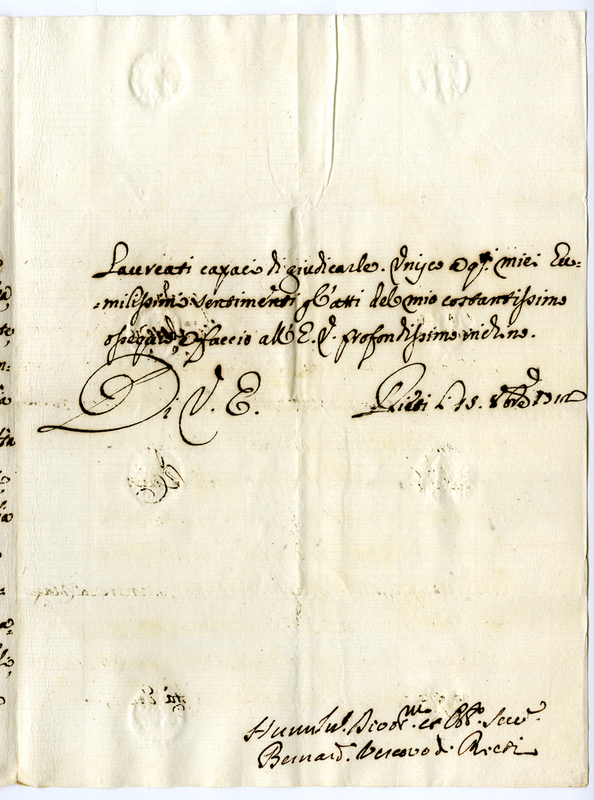 Laureati capaci di giudicarle. Unisco a q.ti miei Eu=
=milissimi sentimenti gl'atti del mio costantissimo
ossequio, e faccio all'E. V. profondissimo inchino.
Di V. E. Rieti li 15. 8bre
Humil.mo Devot.mo et Obb.o Serv.e
Bernard. Vescovo di Rieti